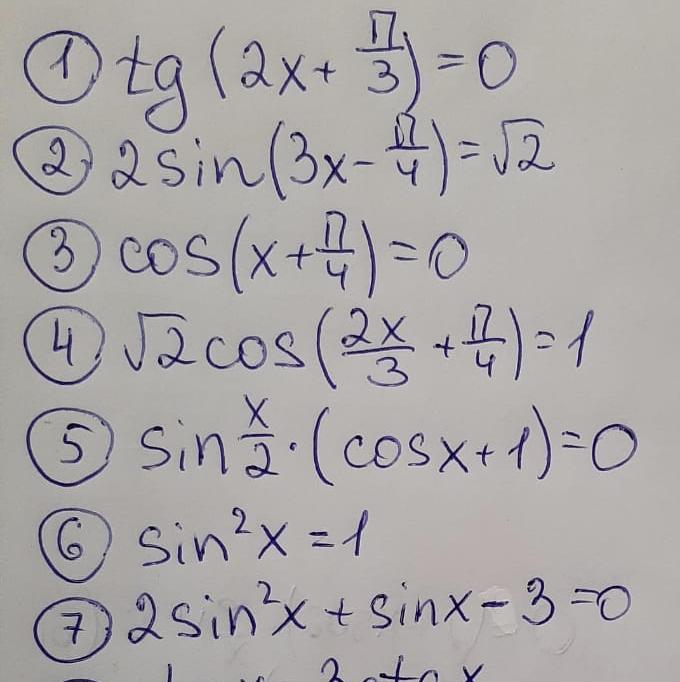 ① tg(2x + π/3) = 0
② 2sin(3x - π/4) = √2
③ cos(x + π/4) = 0
④ √2cos(2x/3 + π/4) = 1
⑤ sin x/2 · (cosx + 1) = 0
⑥ sin²x = 1
⑦ 2sin²x + sinx - 3 = 0